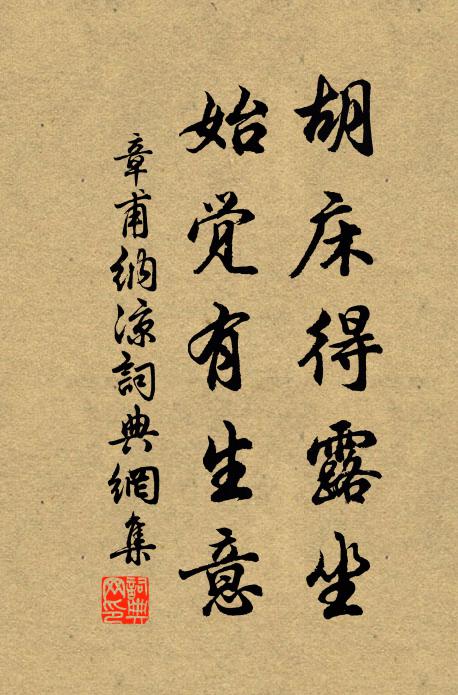 胡床得露坐
始觉有生意
章甫纳凉詞典網集
詞典
网印